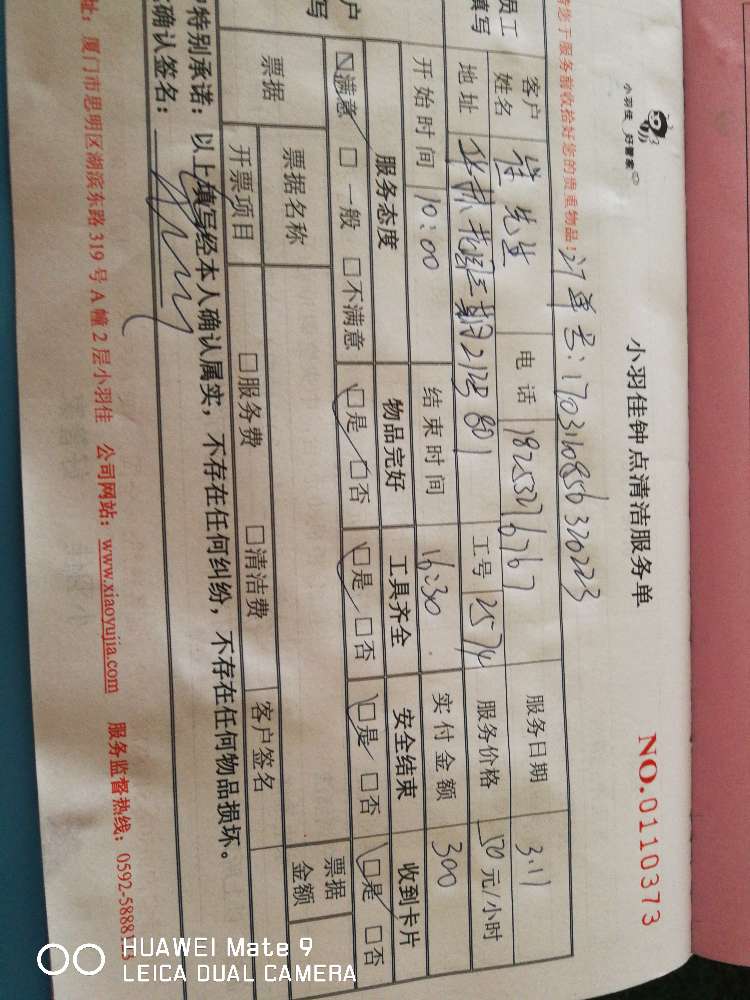 小羽佳 好管家
小羽佳钟点清洁服务单
NO.0110373
订单号:170310850320223
请您于服务前收拾好您的贵重物品!
员工
填写
客户
姓名
先生
电话
18253276767
服务日期
3.11
地址
801
工号
2574
服务价格
50元/小时
开始时间
10:00
结束时间
16:30
实付金额
300
户
写
服务态度
物品完好
工具齐全
安全结束
收到卡片
☑满意 □一般 □不满意
☑是 □否
☑是 □否
☑是 □否
☑是 □否
票据
票据名称
票据
金额
开票项目
□服务费
□清洁费
客户签名
特别承诺:以上填写经本人确认属实,不存在任何纠纷,不存在任何物品损坏。
确认签名:
址:厦门市思明区湖滨东路319号A幢2层小羽佳 公司网站:www.xiaoyujia.com 服务监督热线:0592-5888
HUAWEI Mate 9
LEICA DUAL CAMERA